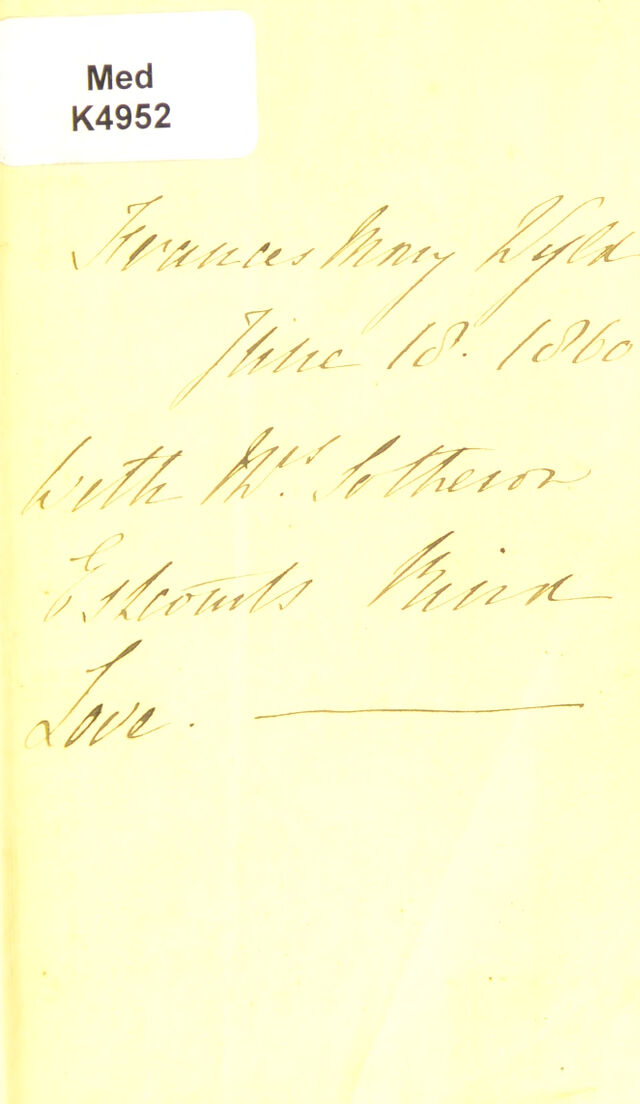 Med
K4952
Frances Mary Wyld
June 18. 1860
With Mrs. Sotheron
Estcourts Kind
Love.